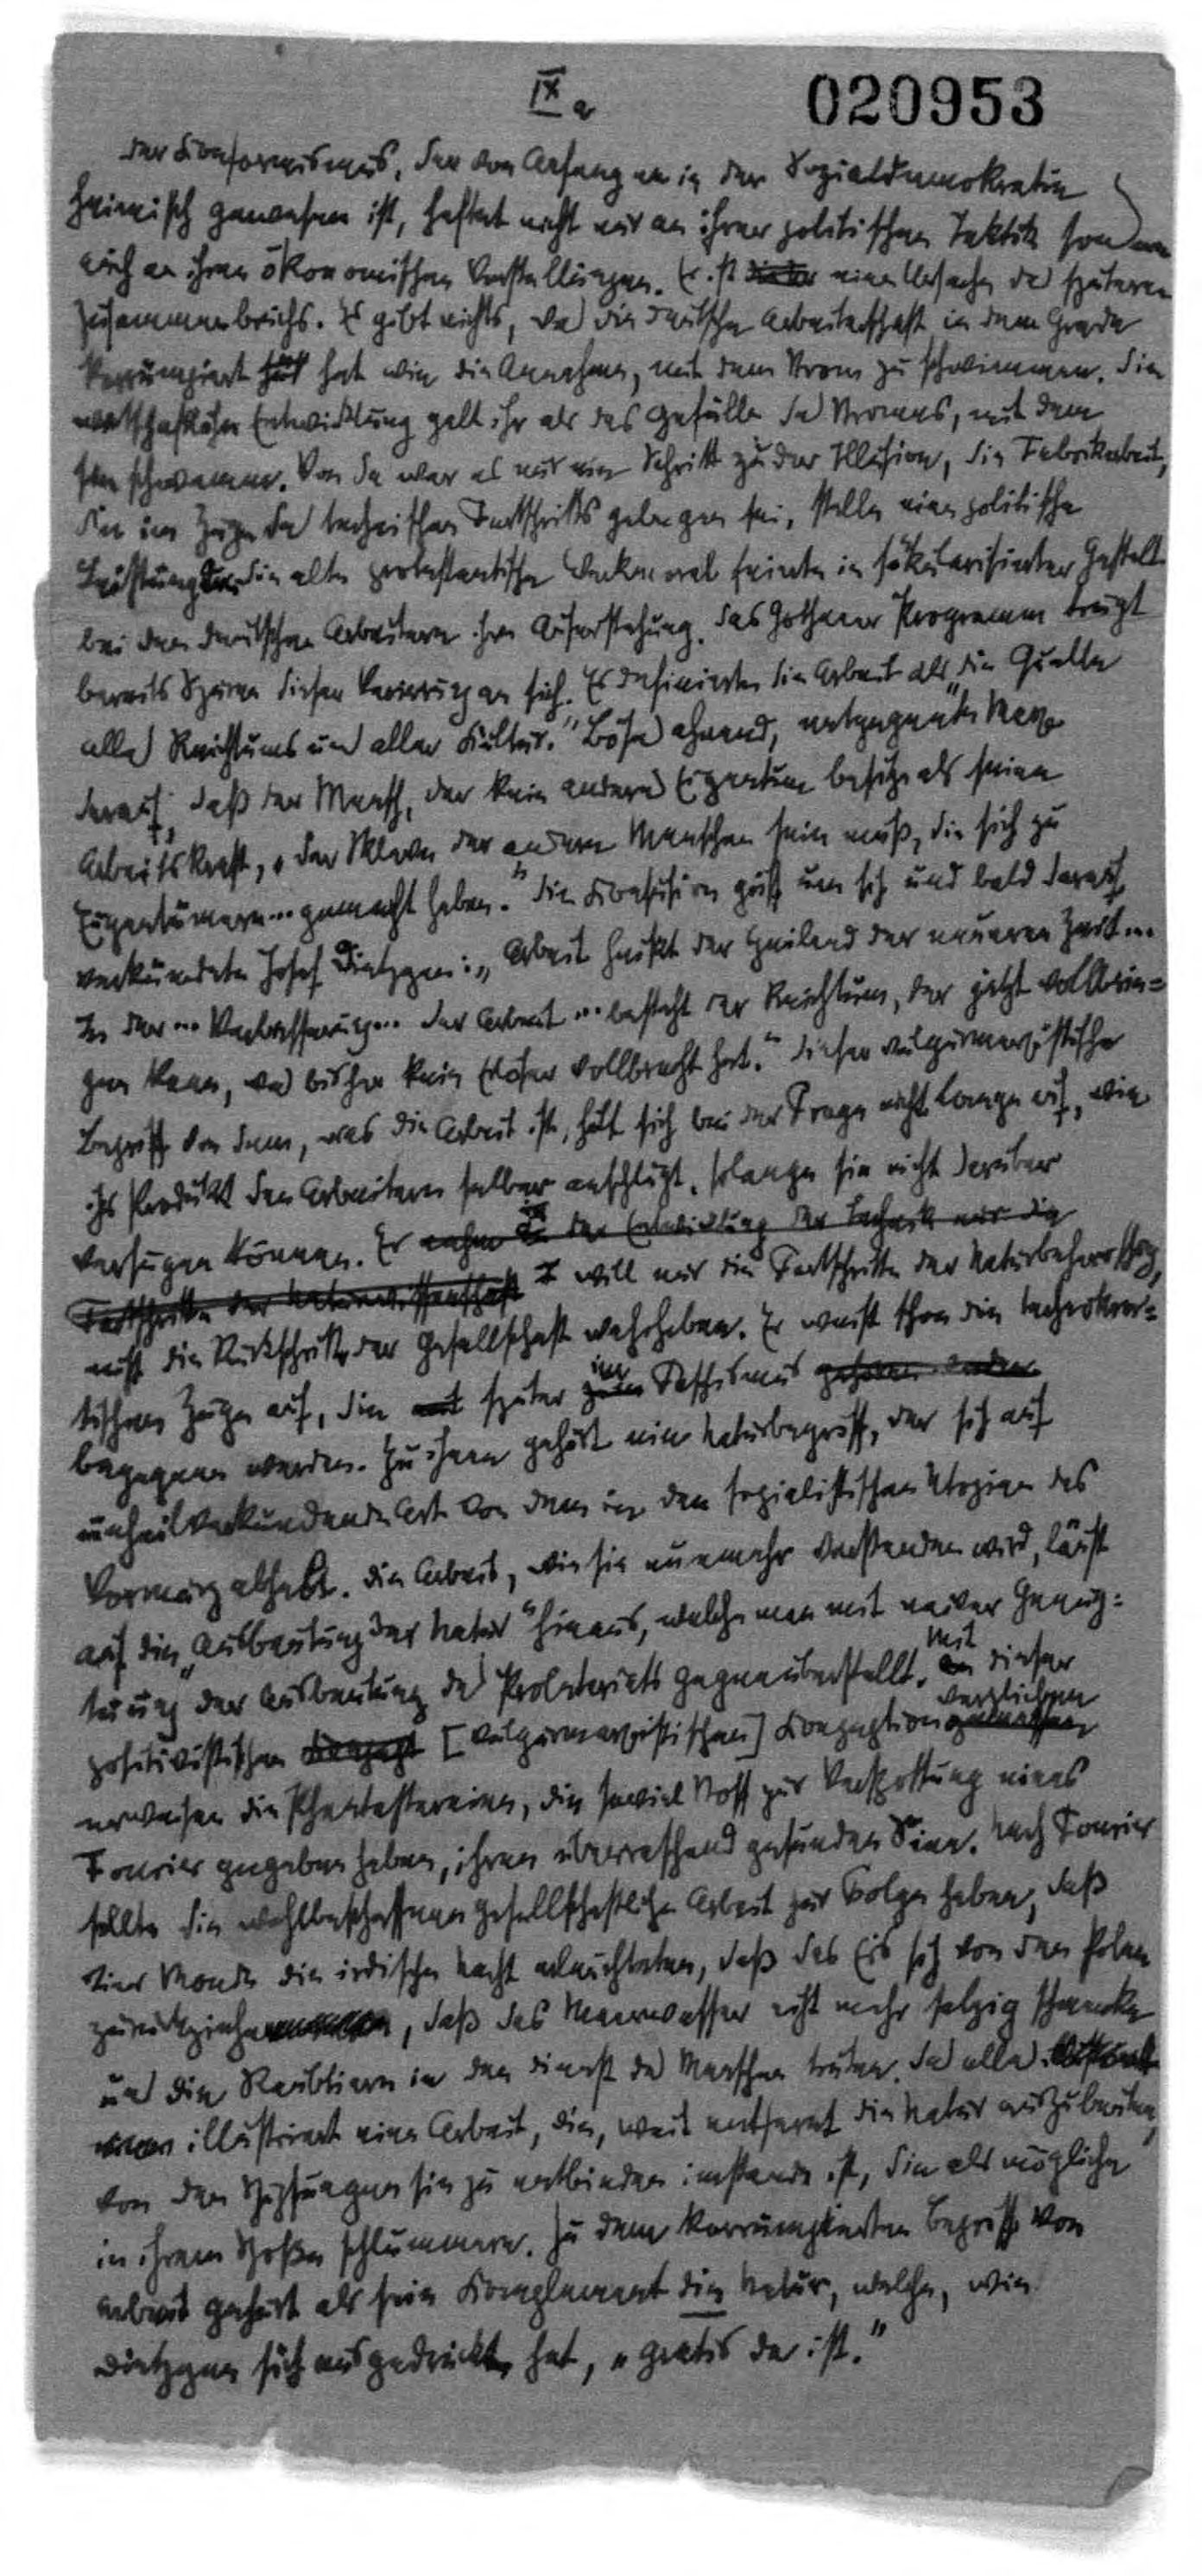 IX a
020953
Der Konformismus, der von Anfang an in der Sozialdemokratie
heimisch gewesen ist, haftet nicht nur an ihrer politischen Taktik sondern
auch an ihren ökonomischen Vorstellungen. Er ist eine Ursache des späteren
Zusammenbruchs. Es gibt nichts, was die deutsche Arbeiterschaft in dem Grade
korrumpiert hat hat wie die Annahme, mit dem Strom zu schwimmen. Die
wirtschaftliche Entwicklung galt ihr als das Gefälle des Stromes, mit dem
sie schwamm. Von da war es nur ein Schritt zu der Illusion, die Fabrikarbeit,
die im Zuge des technischen Fortschritts gelegen sei, stelle eine politische
Leistung dar. Die alte protestantische Werkmoral feierte in säkularisierter Gestalt
bei den deutschen Arbeitern ihre Auferstehung. Das Gothaer Programm trägt
bereits Spuren dieser Verwirrung an sich. Es definierte die Arbeit als die Quelle
alles Reichtums und aller Kultur." Böses ahnend, entgegnete Marx
darauf, daß der Mensch, der kein anderes Eigentum besitze als seine
Arbeitskraft, „der Sklave der andern Menschen sein muß, die sich zu
Eigentümern... gemacht haben." Die Konfusion griff um sich und bald darauf
verkündete Josef Dietzgen: „Arbeit heißt der Heiland der neueren Zeit...
In der... Verbesserung... der Arbeit... besteht der Reichtum, der jetzt vollbrin=
gen kann, was bisher kein Erlöser vollbracht hat." Dieser vulgärmarxistische
Begriff von dem, was die Arbeit ist, hält sich bei der Frage nicht lange auf, wie
ihr Produkt den Arbeitern selber anschlägt, solange sie nicht darüber
verfügen können. Er nahm in der Entwicklung der Technik nur die
Fortschritte der Naturwissenschaft Er will nur die Fortschritte der Naturbeherrschg,
nicht die Rückschritte der Gesellschaft wahrhaben. Er weist schon die technokra=
tischen Züge auf, die später im Faschismus
begegnen werden. Zu ihnen gehört ein Naturbegriff, der sich auf
unheilverkündende Art von dem in den sozialistischen Utopien des
Vormärz abhebt. Die Arbeit, wie sie nunmehr verstanden wird, läuft
auf die „Ausbeutung der Natur" hinaus, welche man mit naiver Genug=
tuung der Ausbeutung des Proletariats gegenüberstellt. Mit dieser
positivistischen [vulgärmarxistischen] Konzeption verglichen
erweisen die Phantastereien, die soviel Stoff zur Verspottung eines
Fourier gegeben haben, ihren überraschend gesunden Sinn. Nach Fourier
sollte die wohlbeschaffene gesellschaftliche Arbeit zur Folge haben, daß
vier Monde die irdische Nacht erleuchteten, daß das Eis sich von den Polen
zurückziehe, daß das Meerwasser nicht mehr salzig schmecke
und die Raubtiere in den Dienst des Menschen träten. Das alles
illustriert eine Arbeit, die, weit entfernt die Natur auszubeuten,
von den Schöpfungen sie zu entbinden imstande ist, die als mögliche
in ihrem Schoße schlummern. Zu dem korrumpierten Begriff von
Arbeit gehört als sein Komplement die Natur, welche, wie
Dietzgen sich ausgedrückt hat, „gratis da ist."